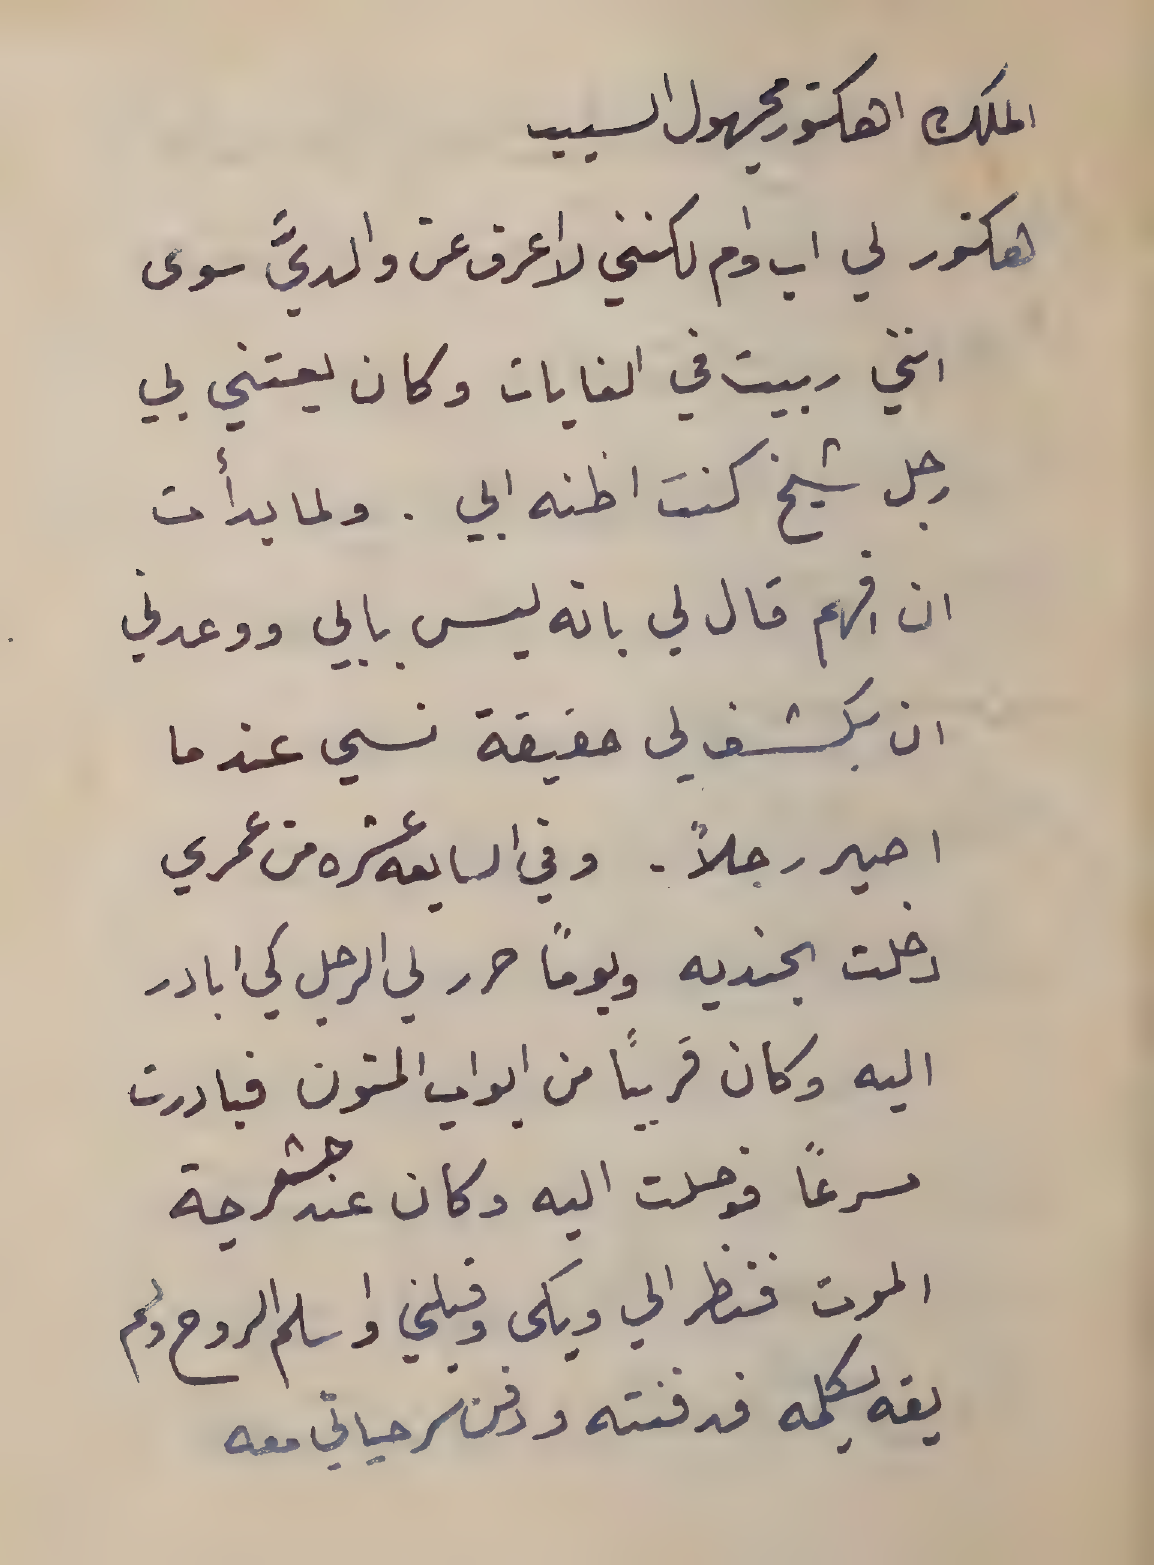 الملك اهكتور مجهول السبب
هكتور لي اب وام لكنني لا اعرف عن والديَّ سوى
انني ربيت في الغابات وكان يعتني بي
رجل شيخ كنت اظنه ابي . ولما بدأت
ان افهم قال لي بانه ليس بابي ووعدني
ان يكشف لي حقيقة نسبي عندما
اصير رجلاً . وفي السابعه عشره من عمري
دخلت بجنديه ويومًا حرر لي الرجل كي ابادر
اليه وكان قريبًا من ابواب المتون فبادرت
مسرعًا فوصلت اليه وكان عند حشرجة
الموت فنظر الي وبكى وقبلني واسلم الروح ولم
يفه بكلمه فدفنته ودفن سر حياتي معه